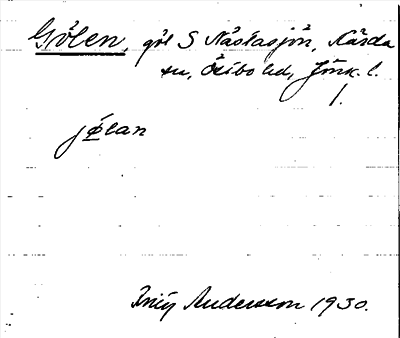 Gölen, göl S Nästasjön, Näsda
sn, Östbo hd, Jönk. l.
1.
jölan
Andersson 1930.